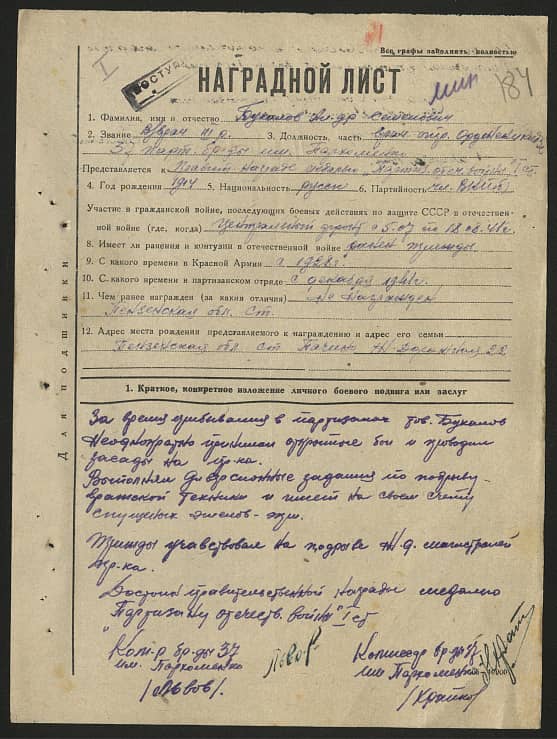 Все графы заполнять полностью
I
НАГРАДНОЙ ЛИСТ
184
1. Фамилия, имя и отчество Букалов Ал-др
2. Звание 3. Должность, часть
37 Парт. бр-ды им. Пархоменко
Представляется к
4. Год рождения 5. Национальность русск 6. Партийность чл. ВКП(б)
Участие в гражданской войне, последующих боевых действиях по защите СССР в отечествен-
ной войне (где, когда) Центральный фронт с 5.07 по 18.08.41г.
8. Имеет ли ранения и контузии в отечественной войне ранен трижды
9. С какого времени в Красной Армии с 1928г.
10. С какого времени в партизанском отряде с декабря 1941г.
11. Чем ранее награжден (за какия отличия) Не Награжден
Пензенская обл. Ст.
12. Адрес места рождения представляемого к награждению и адрес его семьи
Пензенская обл. ст. 22
Для подшивки
1. Краткое, конкретное изложение личного боевого подвига или заслуг
За время пребывания в партизанах тов. Букалов
Неоднократно принимал открытые бои и проводил
засады на пр-ка.
Выполнял диверсионные задания по подрыву
вражеской техники и имеет на своем счету
спущеных эшелов-
Трижды учавствовал на подрыве Ж.Д. магистралей
пр-ка.
Достоин правительственной награды медалью
Партизану отечеств. войны" I ст
Ком-р бр-ды 37
им. Пархоменко
/Львов/.
Комиссар бр-ды 37
им Пархоменко
/Крайко/